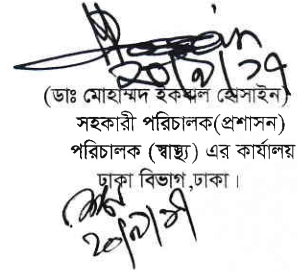 ২০/৯/১৭
(ডাঃ মোহাম্মদ ইকবাল হোসাইন)
সহকারী পরিচালক(প্রশাসন)
পরিচালক (স্বাস্থ্য) এর কার্যালয়
ঢাকা বিভাগ,ঢাকা।